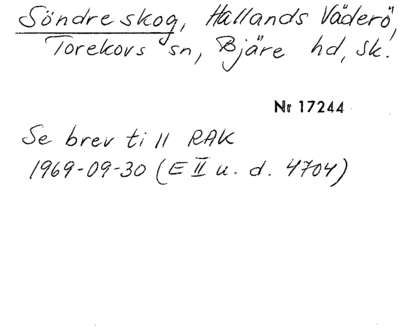 Söndre skog, Hallands Väderö,
Torekovs sn, Bjäre hd, sk.
Nr 17244
Se brev till RAK
1969-09-30 (E II u. d. 4704)